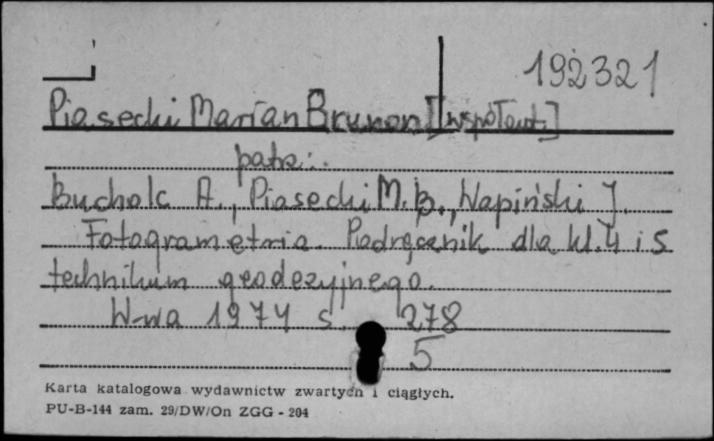 192321
Piasecki Marian Brunon [współaut.]
patrz:
Bucholc A., Piasecki M.B., Wapiński J.
Fotogrametria. Podręcznik dla kl. 4 i 5
technikum geodezyjnego.
W-wa 1974 s. 278
5
Karta katalogowa wydawnictw zwartych i ciągłych.
PU-B-144 zam. 29/DW/On ZGG - 204